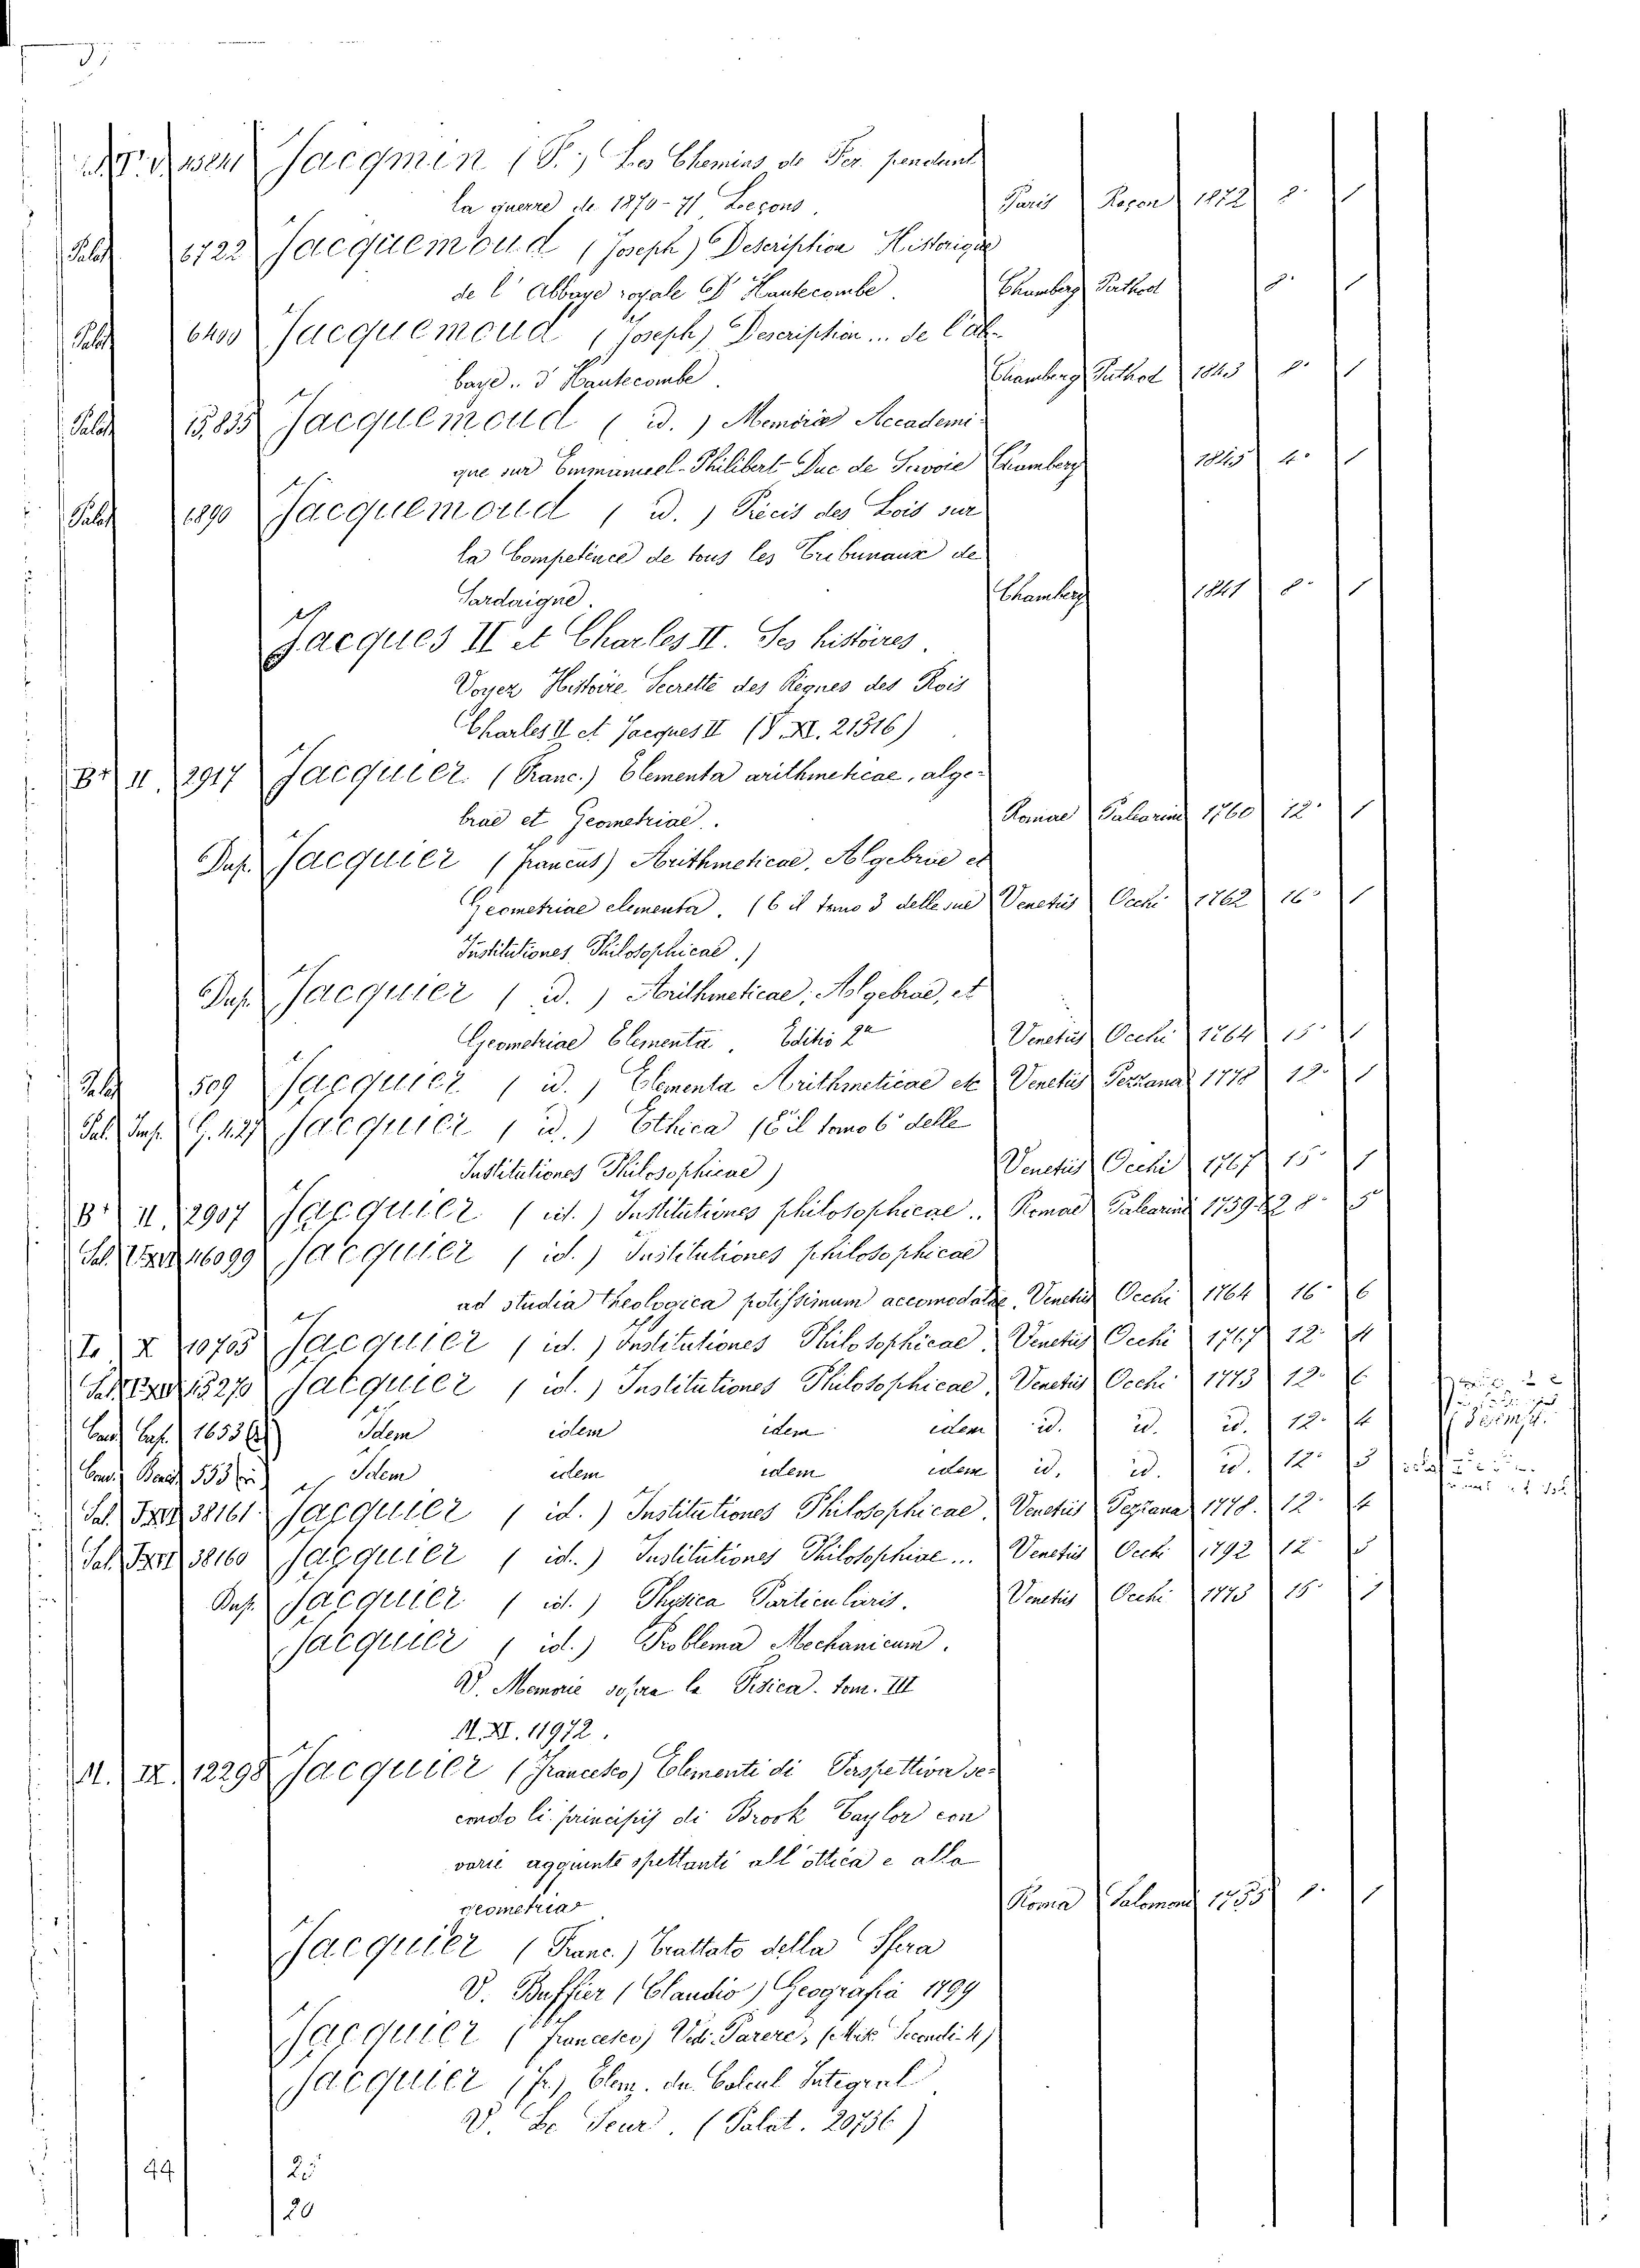 Jacqmin (F.) Les Chemins de Fer pendant
la guerre de 1870-71 Leçons. Paris 1872 8. 1
Palat 6722 Jacquemoud (Joseph) Description Historique
de l'Abbaye royale d'Hautecombe. Chambery Puthod 8. 1
Palat 6400 Jacquemoud (Joseph) Description... de l'ab-
baye.. d'Hautecombe. Chambery Puthod 1843 8. 1
Palat 15,835 Jacquemoud (id.) Memoire Accademi-
que sur Emmanuel-Philibert Duc de Savoie Chambery 1845 4. 1
Palat 1890 Jacquemoud (id.) Précis des Lois sur
la Competénce de tous les Tribunaux de
Sardaigne. Chambery 1841 8. 1
Jacques II et Charles II. Ses histoires.
Voyez Histoire Secrette des Régnes des Rois
Charles II et Jacques II (V. XI. 21316)
Br. II. 2917 Jacquier (Franc.) Elementa arithmeticae, alge-
brae et Geometriae.. Romae Palearini 1760 12. 1
Jacquier (Francus) Arithmeticae, Algebrae et
Geometriae elementa. (È il tomo 3 delle sue Venetiis Occhi 1762 16. 1
Institutiones Philosophicae.)
Jacquier (id.) Arithmeticae, Algebrae, et
Geometriae Elementa. Editio 2a Venetiis Occhi 1764 15. 1
Palat 509 Jacquier (id.) Elementa Arithmeticae etc Venetiis Pezzana 1778 12. 1
Pal. G. 4.27 Jacquier (id.) Ethica (È il tomo 6° delle
Institutiones Philosophicae) Venetiis Occhi 1767 15. 1
Br. II. 2907 Jacquier (id.) Institutiones philosophicae.. Romae Palearini 8. 5
16099 Jacquier (id.) Institutiones philosophicae
ad studia theologica potissimum accomodatae. Venetiis Occhi 1764 16. 6
X 10705 Jacquier (id.) Institutiones Philosophicae. Venetiis Occhi 1767 12. 4
15270 Jacquier (id.) Institutiones Philosophicae. Venetiis Occhi 1773 12. 6
Idem idem idem idem id. id. id. 12. 4
Idem idem idem idem id. id. id. 12. 3
38161 Jacquier (id.) Institutiones Philosophicae. Venetiis Pezzana 1778. 12. 4
38160 Jacquier (id.) Institutiones Philosophiae... Venetiis Occhi 1792 12 5
Jacquier (id.) Physica Particularis. Venetiis Occhi 1773 15. 1
Jacquier (id.) Problema Mechanicum.
V. Memorie sopra la Fisica. tom. III
M. XI. 11972.
M. IX. 12298 Jacquier (Francesco) Elementi di Perspettiva se-
condo li principij di Brook Taylor con
varie aggiunte spettanti all'ottica e alla
geometria Roma Salomoni 1755 8. 1
Jacquier (Franc.) Trattato della Sfera
V. Buffier (Claudio) Geografia 1799
Jacquier (Francesco) Vedi Parere,
Jacquier (F.) Elem. du Calcul Integral
V. Le Seur. (Palat. 20736)
44 25
20